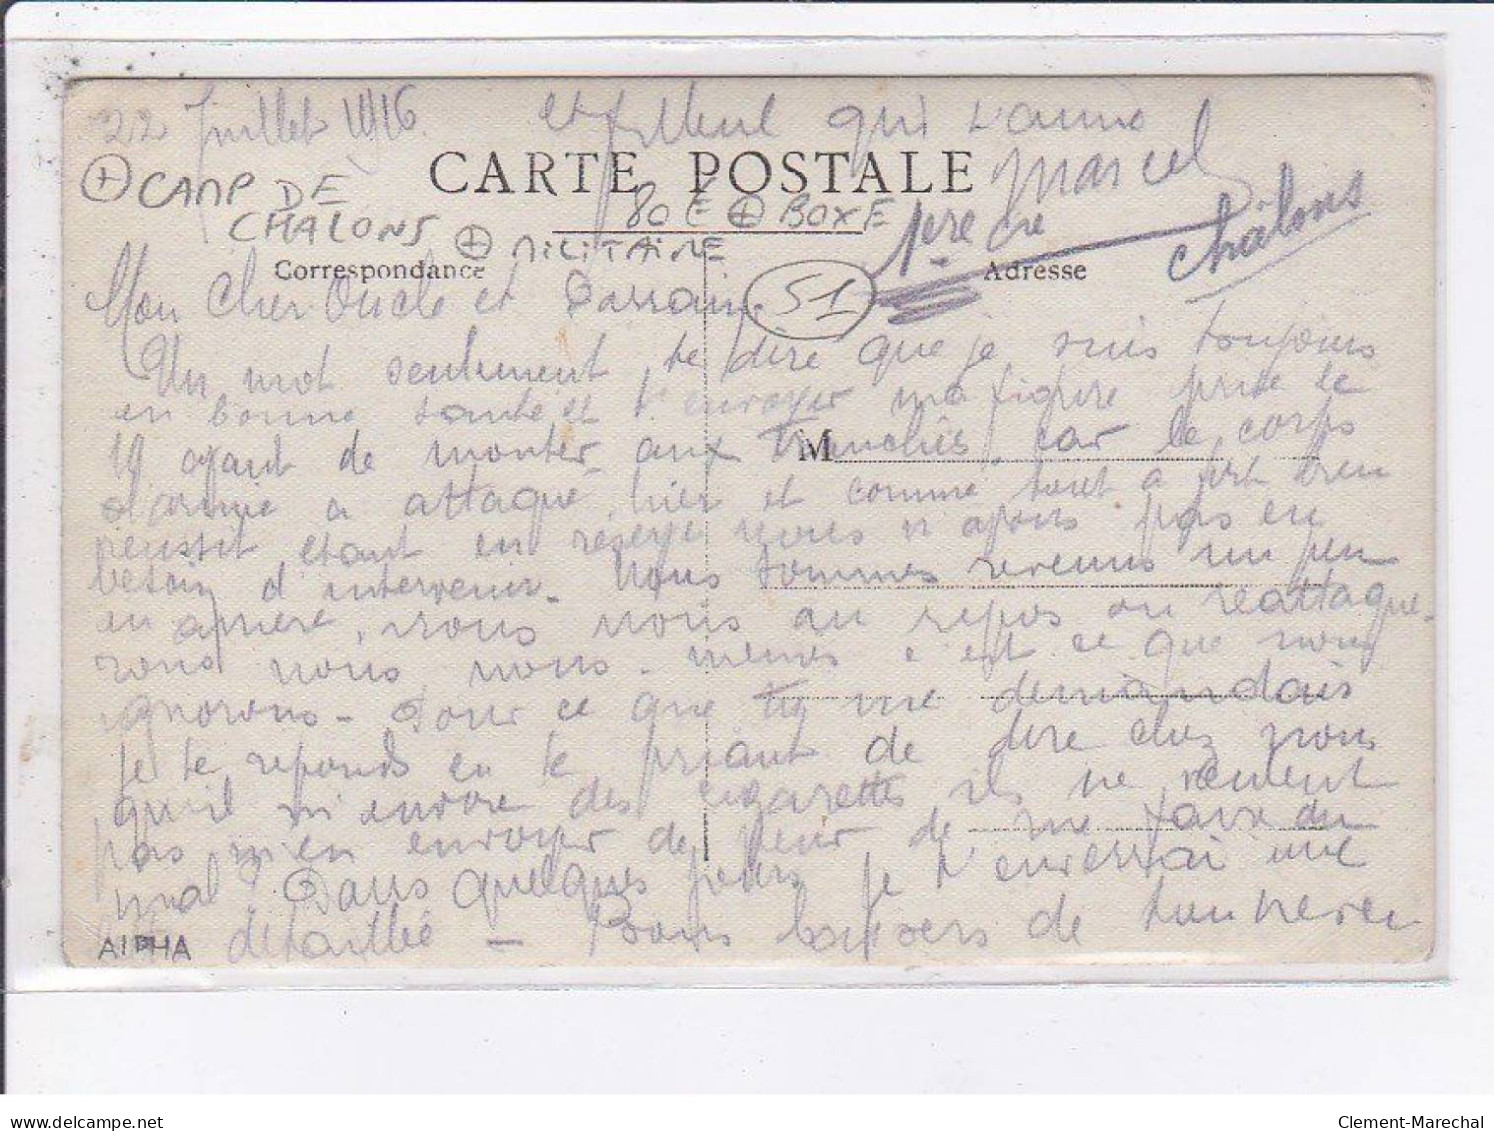 22 Juillet 1916
et filleul qui t'aime
Marcel
CARTE POSTALE
CAMP DE CHALONS
MILITAIRE
80 E BOXE
1ere
Châlons
Correspondance
51
Adresse
Mon Cher Oncle et Parrain.
Un mot seulement te dire que je suis toujours
en bonne santé et t'envoyer ma figure prise le
19 avant de monter aux tranchés, car le corps
d'armée a attaqué hier et comme tout a fort bien
réussit étant en réserve nous n'avons pas eu
besoin d'intervenir. Nous sommes revenus un peu
en arriere, irons nous au repos ou réattaque-
rons nous nous-memes c'est ce que nous
ignorons - Pour ce que tu me demandais
je te reponds en te priant de dire chez nous
qu'il m'envoie des cigarettes ils ne veulent
pas m'en envoyer de peur de me faire du
mal. Dans quelques jours je t'enverrai une
détaillée - Bons baisers de ton neveu
M
ALPHA
www.delcampe.net
Clement-Marechal